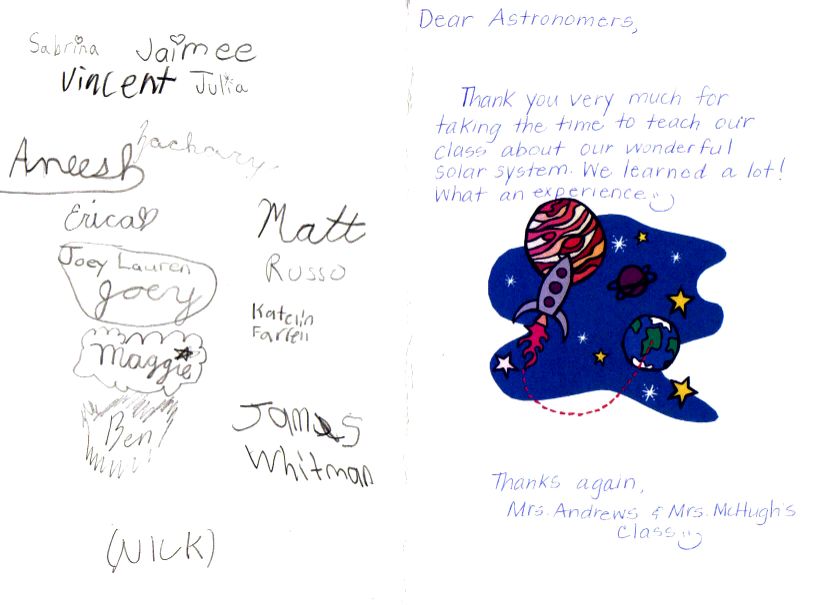 Sabrina Jaimee
Vincent Julia
Zachary
Aneesh
Erica
Matt
Joey Lauren
Joey
Russo
Katelin
Farrell
Maggie
Ben
James
Whitman
(NICK)
Dear Astronomers,
Thank you very much for
taking the time to teach our
class about our wonderful
solar system. We learned a lot!
What an experience.
Thanks again,
Mrs. Andrews & Mrs. McHugh's
Class